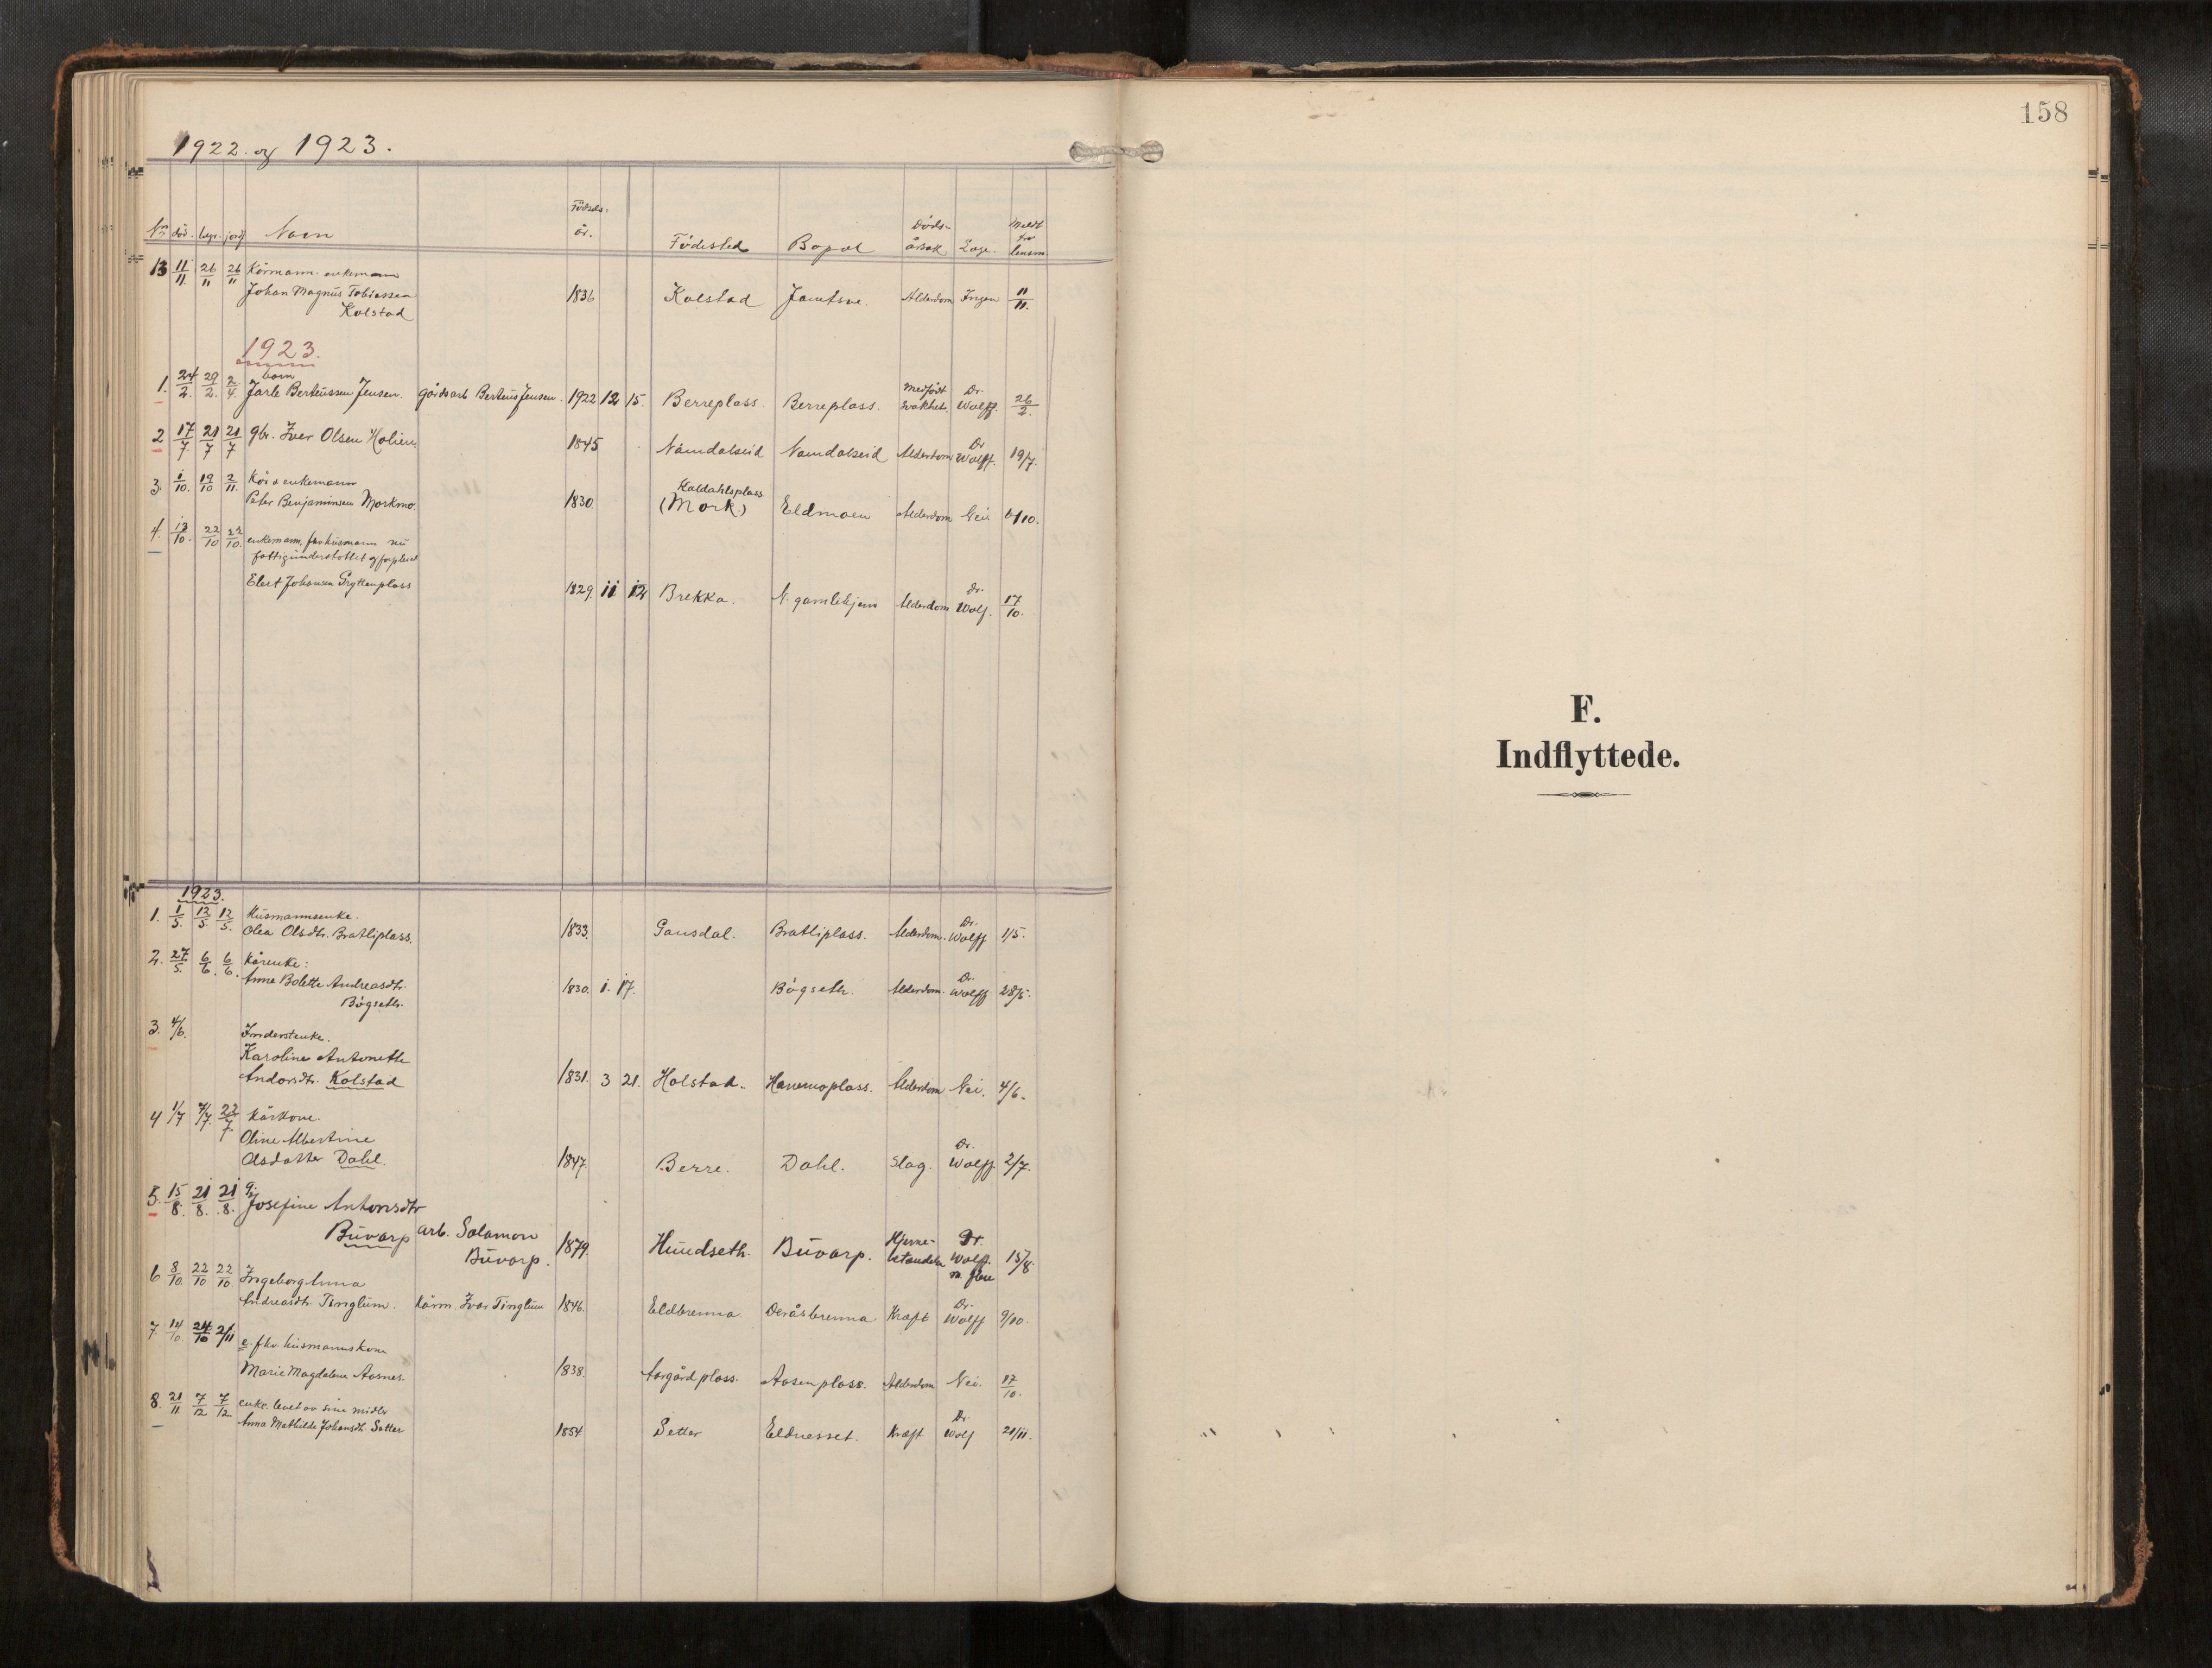 1922. og 1923.
158
Nr. død. begr. jordf. Navn Fødsels-år. Fødested Bopæl Døds-årsak Læge. Meldt fra lensm.
13 11/11. 26/11 26/11 Kårmann. enkemann
Johan Magnus Tobiassen 1836 Kolstad Jamtsve. Alderdom Ingen 11/11.
Kolstad
1923.
barn
1. 24/2. 29/2. 2/4. Jarle Berteussen Jensen. gårdsarb Berteus Jensen. 1922 12 15. Berreplass. Berreplass. Medfødt svakhet. Dr. Wolff. 26/2.
2 17/7. 21/7 21/7 gbr. Iver Olsen Holien 1845 Namdalseid Namdalseid Alderdom Dr Wolff. 19/7.
3. 1/10. 19/10 2/11. Kår & enkemann
Peter Benjaminsen Morkmo. 1830. Kaldahlsplass (Mork.) Eldmoen Alderdom Nei
4. 13/10. 22/10 22/10. enkemann, fhv husmann nu
fattigunderstøttet og forpleiet
Elert Johansen Gryttenplass 1829. 11 12 Brekka. N. gamlehjem Alderdom Dr. Wolf. 17/10.
F.
Indflyttede.
1923.
1. 1/5. 12/5. 12/5. Husmannsenke.
Olea Olsdtr. Bratliplass. 1833. Gausdal. Bratliplass. Alderdom. Dr. Wolff 1/5.
2. 27/5. 6/6. 6/6. Kårenke:
Anne Bolette Andreasdtr. 1830. 1. 17. Bøgseth. Alderdom. Dr. Wolff 28/5.
Bøgseth.
3. 4/6. Inderstenke.
Karoline Antonette
Andorsdtr. Kolstad 1831. 3 21. Holstad. Hanemoplass. Alderdom Nei. 4/6.
4 1/7 7/7. 22/7. Kårkone.
Oline Albertine
Olsdatter Dahl. 1847. Berre. Dahl. Slag. Dr. Wolff 2/7.
5. 15/8. 21/8. 21/8. g.
Josefine Antonsdtr
Buvarp arb. Salamon Buvarp. 1879. Hundseth. Buvarp. Hjerne-betændelse Dr. Wolff. m. flere 15/8.
6 8/10. 22/10 22/10. Ingeborg Anna
Andreasdtr. Tinglum. Kårm. Ivar Tinglum 1846. Eldbrenna Deråsbrenna Kræft Dr. Wolff 9/10.
7. 14/10. 24/10 2/11 e. fhv. husmannskone
Marie Magdalene Aasnes. 1838. Aargårdplass. Aasenplass. Alderdom Nei. 17/10.
8. 21/11 7/12 7/12 enke. levet av sine midler
Anna Mathilde Johansdtr. Setter 1854 Setter Eldnesset. Kræft Dr. Wolf 21/11.